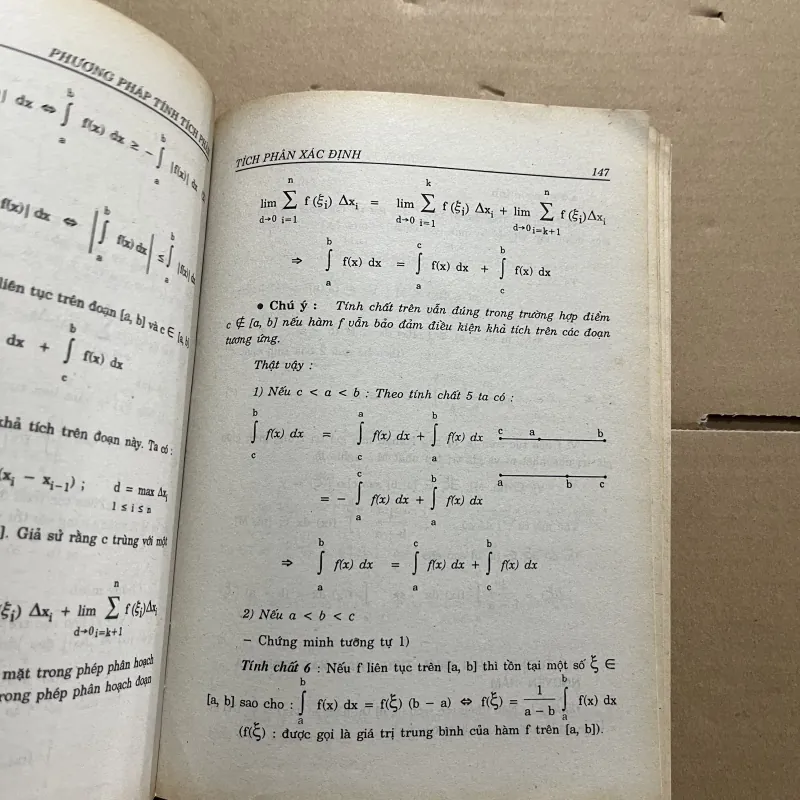 PHƯƠNG PHÁP TÍNH TÍCH PHÂN
| dx ⇔ ∫_a^b f(x) dx ≥ − ∫_a^b |f(x)| dx
f(x)| dx ⇔ |∫_a^b f(x) dx| ≤ ∫_a^b |f(x)| dx
liên tục trên đoạn [a, b] và c ∈ [a, b]
dx + ∫_c^b f(x) dx
khả tích trên đoạn này. Ta có :
(x_i − x_{i−1}) ; d = max Δx_i
1 ≤ i ≤ n
]. Giả sử rằng c trùng với một
(ξ_i) Δx_i + lim_{d→0} ∑_{i=k+1}^n f (ξ_i)Δx_i
mặt trong phép phân hoạch
rong phép phân hoạch đoạn
TÍCH PHÂN XÁC ĐỊNH 147
lim_{d→0} ∑_{i=1}^n f (ξ_i) Δx_i = lim_{d→0} ∑_{i=1}^k f (ξ_i) Δx_i + lim_{d→0} ∑_{i=k+1}^n f (ξ_i)Δx_i
⇒ ∫_a^b f(x) dx = ∫_a^c f(x) dx + ∫_c^b f(x) dx
• Chú ý : Tính chất trên vẫn đúng trong trường hợp điểm
c ∉ [a, b] nếu hàm f vẫn bảo đảm điều kiện khả tích trên các đoạn
tương ứng.
Thật vậy :
1) Nếu c < a < b : Theo tính chất 5 ta có :
∫_c^b f(x) dx = ∫_c^a f(x) dx + ∫_a^b f(x) dx c a b
= − ∫_a^c f(x) dx + ∫_a^b f(x) dx a b c
⇒ ∫_a^b f(x) dx = ∫_a^c f(x) dx + ∫_c^b f(x) dx
2) Nếu a < b < c
− Chứng minh tưỡng tự 1)
Tính chất 6 : Nếu f liên tục trên [a, b] thì tồn tại một số ξ ∈
[a, b] sao cho : ∫_a^b f(x) dx = f(ξ) (b − a) ⇔ f(ξ) = 1/(a − b) ∫_a^b f(x) dx
(f(ξ) : được gọi là giá trị trung bình của hàm f trên [a, b]).